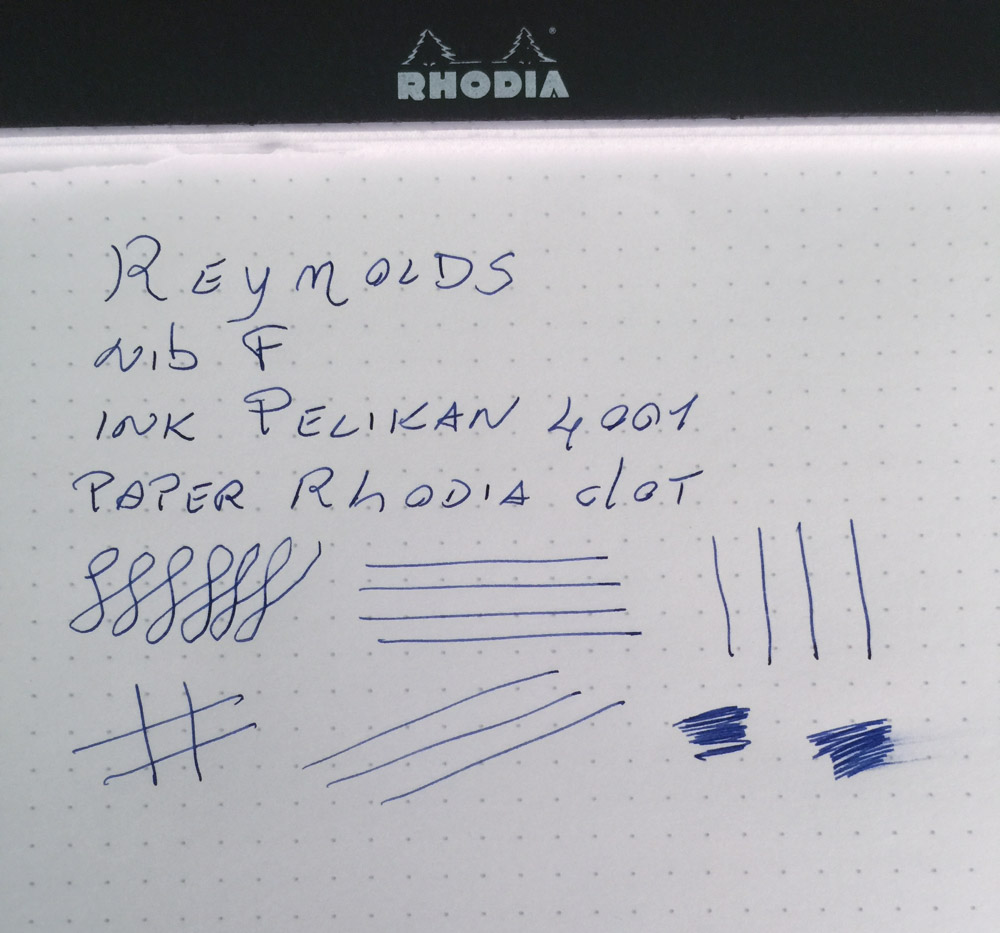 RHODIA
REYNOLDS
nib F
INK PELIKAN 4001
PAPER RhODIA doT